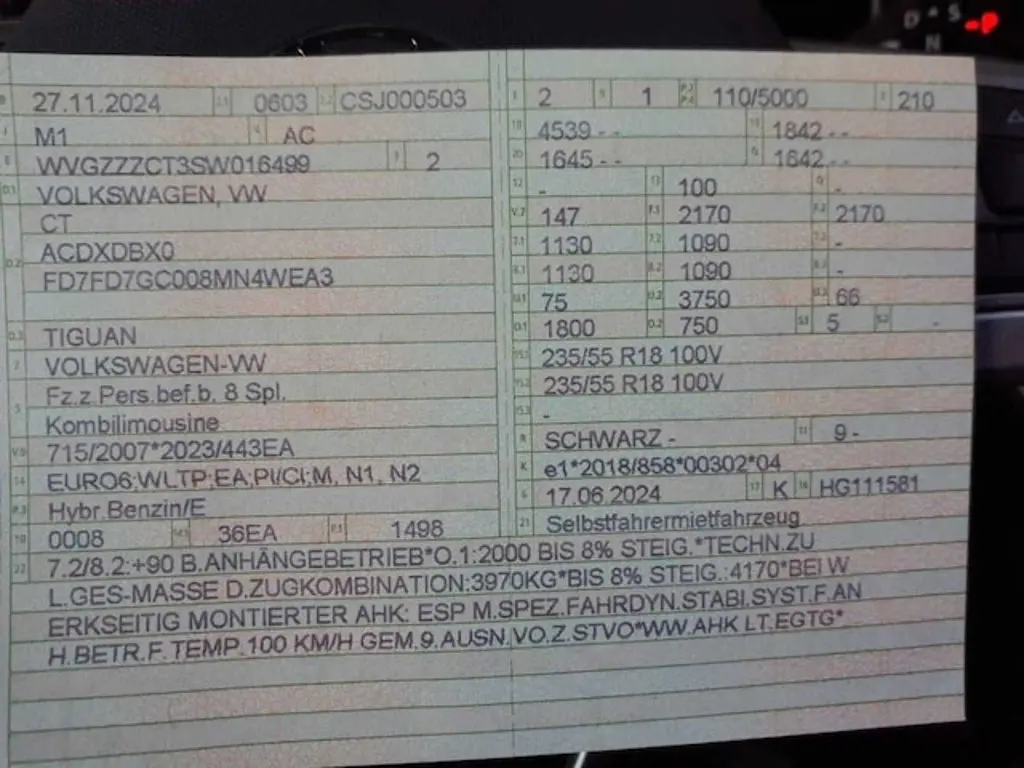 27.11.2024 2.1 0603 2.2 CSJ000503
J M1 4 AC
E WVGZZZCT3SW016499 3 2
D.1 VOLKSWAGEN, VW
CT
D.2 ACDXDBX0
FD7FD7GC008MN4WEA3
D.3 TIGUAN
2 VOLKSWAGEN-VW
5 Fz.z.Pers.bef.b. 8 Spl.
Kombilimousine
V.9 715/2007*2023/443EA
14 EURO6;WLTP;EA;PI/CI;M, N1, N2
P.3 Hybr.Benzin/E
10 0008 14.1 36EA P.1 1498
L 2 9 1 P.2 P.4 110/5000 T 210
18 4539 - - 19 1842 - -
20 1645 - - G 1642 - -
12 - 13 100 Q -
V.7 147 F.1 2170 F.2 2170
7.1 1130 7.2 1090 7.3 -
8.1 1130 8.2 1090 8.3 -
U.1 75 U.2 3750 U.3 66
O.1 1800 O.2 750 S.1 5 S.2 -
15.1 235/55 R18 100V
15.2 235/55 R18 100V
15.3 -
R SCHWARZ - 11 9 -
K e1*2018/858*00302*04
6 17.06.2024 17 K 16 HG111581
21 Selbstfahrermietfahrzeug
22 7.2/8.2:+90 B.ANHÄNGEBETRIEB*O.1:2000 BIS 8% STEIG.*TECHN.ZU
L.GES-MASSE D.ZUGKOMBINATION:3970KG*BIS 8% STEIG.:4170*BEI W
ERKSEITIG MONTIERTER AHK: ESP M.SPEZ.FAHRDYN.STABI.SYST.F.AN
H.BETR.F.TEMP.100 KM/H GEM.9.AUSN.VO.Z.STVO*WW.AHK LT.EGTG*
D S
N P